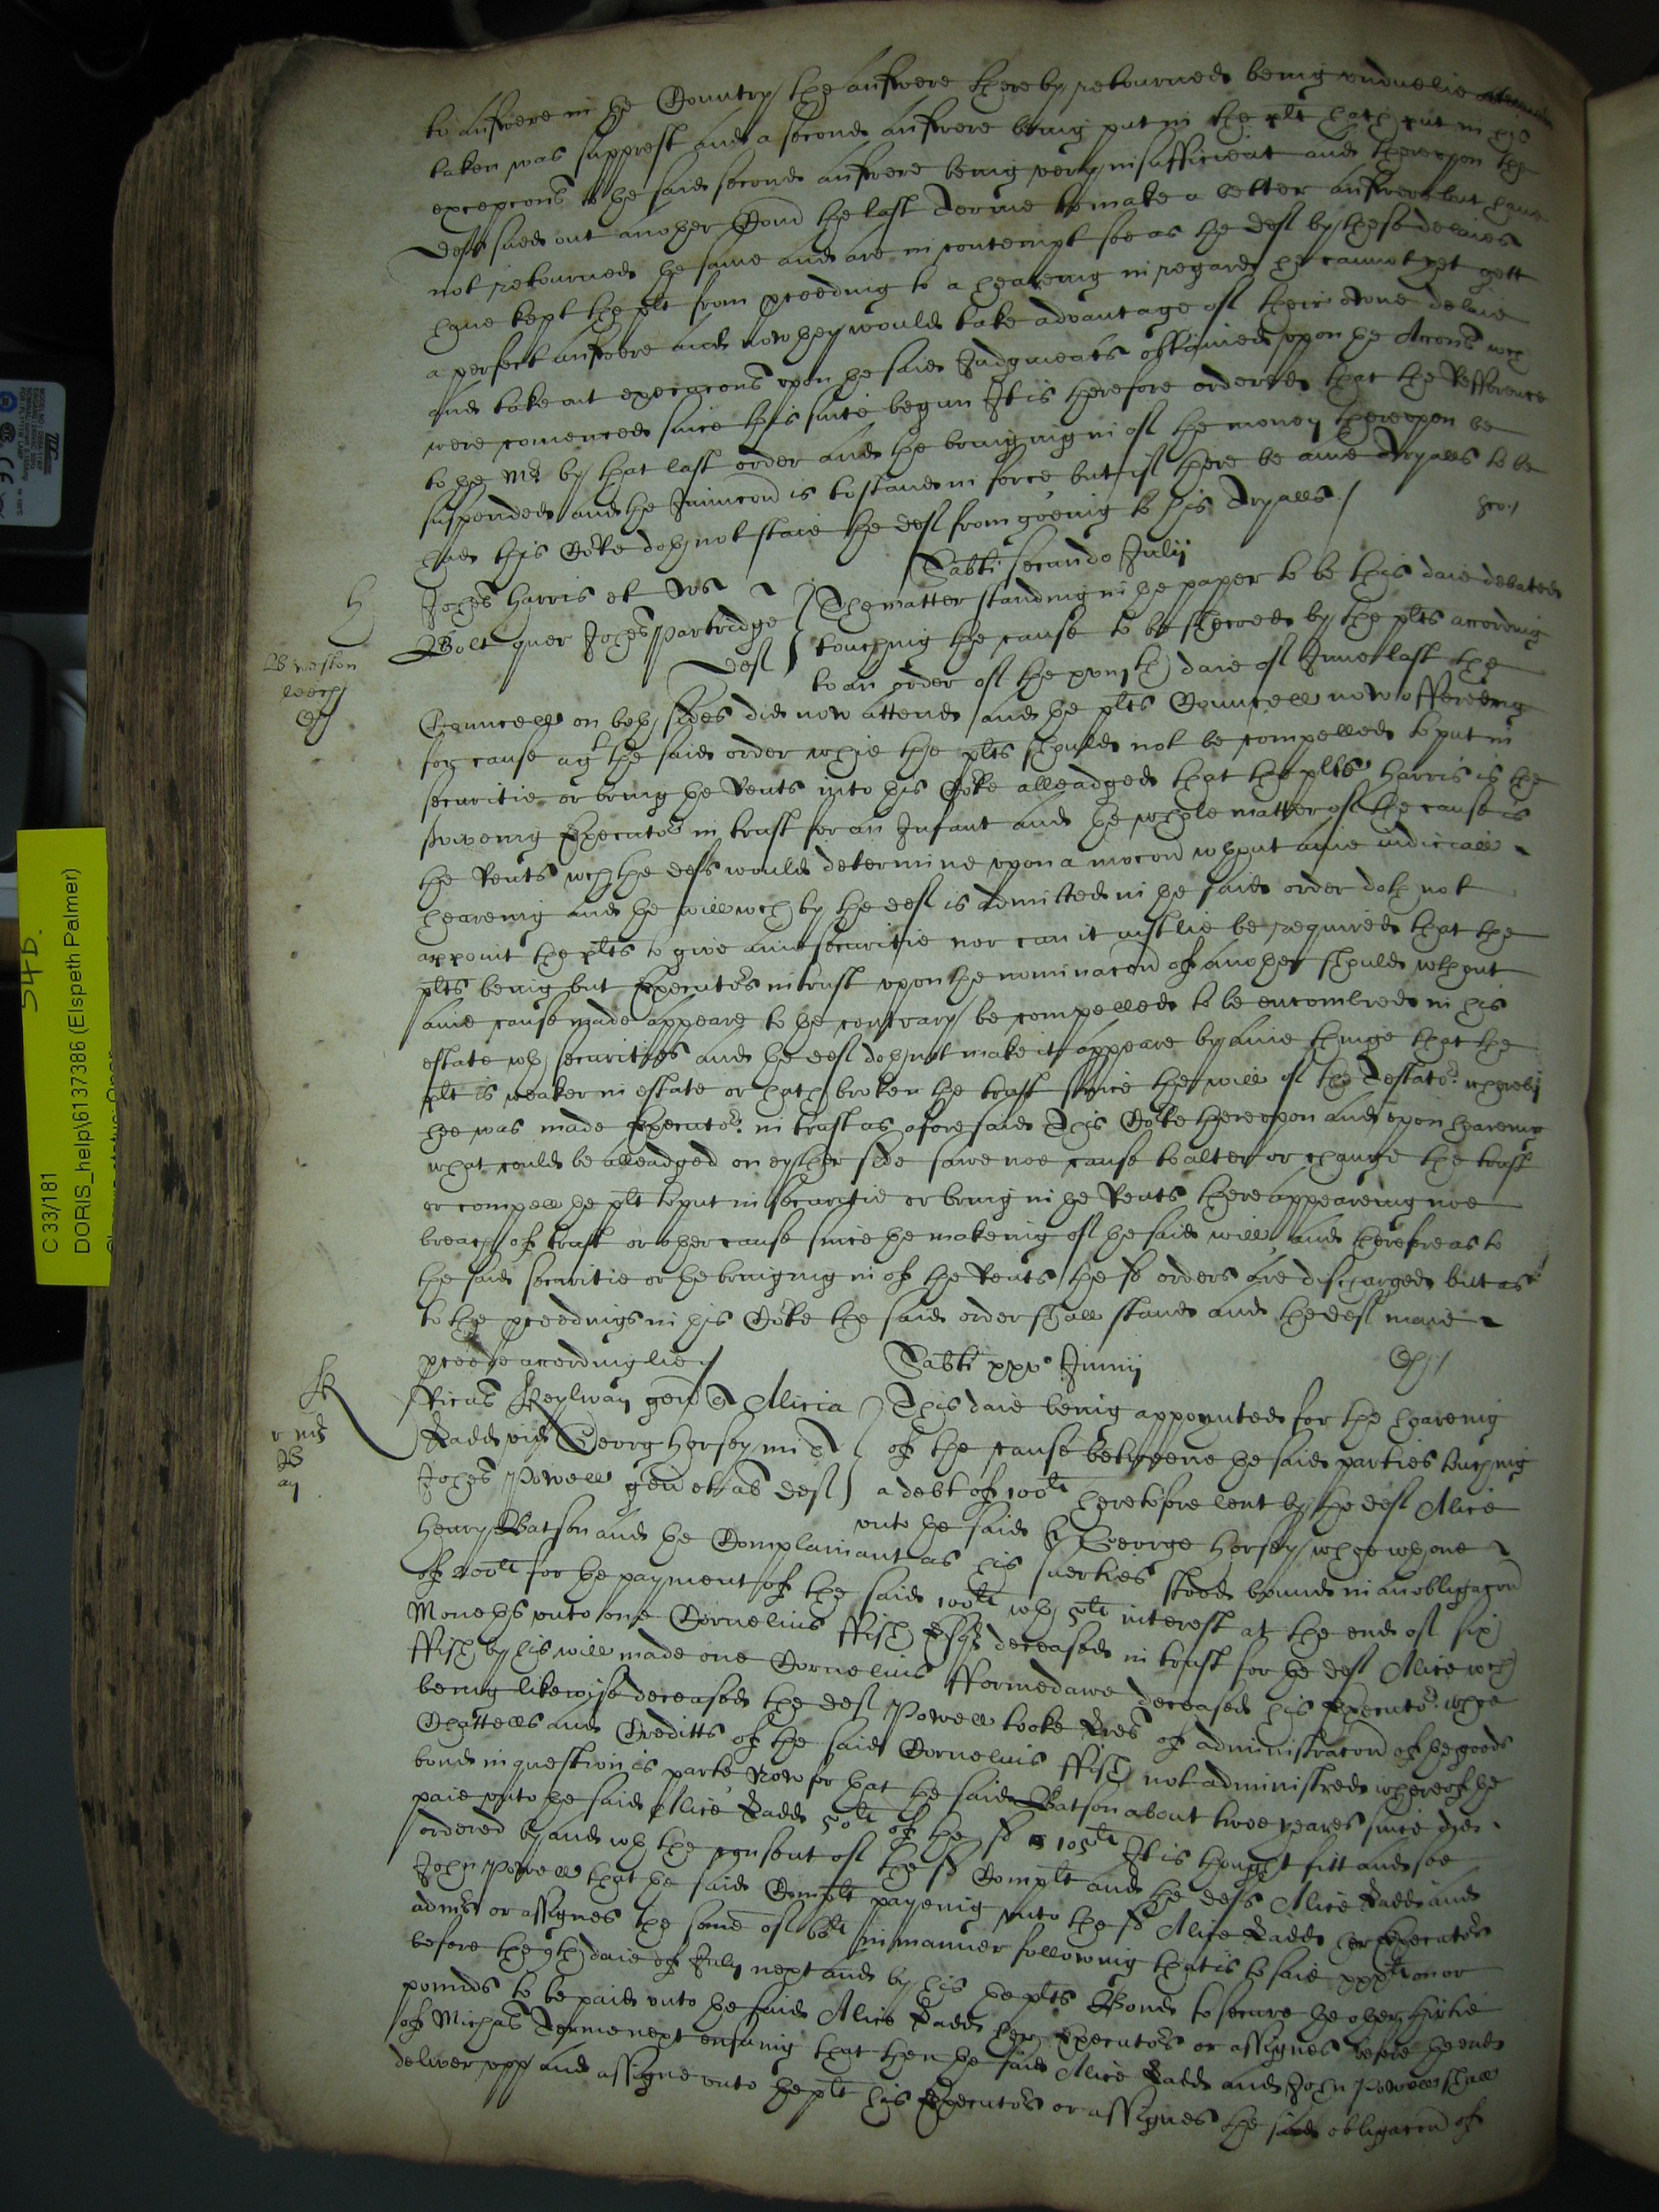 to answere in the Country the answere thereby retourned being unduelie
taken was supprest and a second answere being put in the plt hath put in his
excepcons to the said second answere being very insufficient and thereupon the
defts sued out another Comd the last Terme to make a better answere but have
not retourned the same and are in contempt soe as the deft by these delaies
have kept the plt from pceeding to a heareing in regard he cannot yet gett
a perfect answere and now they would take advantage of their owne delaie
and take out execucons upon the said Judgmeats obtained upon the Accons wch
were comenced since this suite begun It is therefore ordered that the Refference
to the Mr by that last order and the bringing in of the money thereupon be
suspended and the Iniuncon is to stand in force but if there be anie Tryalls to be
had this Corte doth not staie the deft from goeing to his Tryalls /
Sabti secundo Julij
Johes Harris et
quer Johes Partridge
deft
The matter standing in the paper to be this daie debated
touching the cause to be shewed by the plts according
to an order of the xviijth daie of June last the
W weston
leech
Councell on both sides did now attend and the plts Councell now offereing
for cause agt the said order whie the plts should not be compelled to put in
securitie or bring the Rents into this Corte alleadged that the plts Harris is the
surviveing Executor in trust for an Infant and the whole matter of the cause is
the Rents wch the defts would determine upon a mocon wthout anie iudiciall
heareing and the will wch by the deft is admitted in the said order doth not
appoint the plts to give anie securitie nor can it iustlie be required that the
plts being but Executors in trust upon the nominacon of another should wthout
anie cause made appeare to the contrary be compelled to be encombred in his
estate wth securities and the deft doth not make it appeare by anie thinge that the
plt is weaker in estate or hath broken the trust since the will of the Testator whereby
hee was made Executor in trust as aforesaid This Corte thereupon and upon heareing
what could be alleadged on eyther side sawe noe cause to alter or change the trust
or compell the plt to put in securitie or bring in the Rents there appeareing noe
breach of trust or other cause since the makeing of the said will and therefore as to
the said securitie or the bringing in of the Rents the sd orders are discharged but as
to the pceedings in this Corte the said order shall stand and the deft maie
pceede accordinglie /
Sabti xxvo Junij
Ricus Keylway gen Alicia
Ladd vid Georg Horsey mil
Johes Powell gen et al deft
This daie being appoynted for the heareing
of the cause betweene the said parties touching
a debt of 100li heretofore lent by the deft Alice
unto the said Sr George Horsey whoe wth one
Henry Watson and the Complainant as his suerties stood bound in an obligacon
of 200li for the payment of the said 100li wth 5li interest at the end of six
Moneths unto one Cornelius ffish Esqr deceased in trust for the deft Alice wch
ffish by his will made one Cornelius ffermedawe deceased his Executor whoe
being likewise deceased the deft Powell tooke Lres of administracon of the goods
Chattells and Creditts of the said Cornelius ffish not administred whereof the
bond in question is parte Now for that the said Watson about twoe yeares since did
paie unto the said Alice Ladd 50li of the sd 105li It is thought fitt and soe
ordered by and wth the consent of the sd Complt and the defts Alice Ladd and
John Powell that the said Complt payeing unto the sd Alice Ladd her Executors
admrs or assignes the some of 60li in manner following that is to saie xxxli on or
before the 9th daie of July next and by his the plts Bond to secure the other thirtie
pounds to be paid unto the said Alice Ladd her Executors or assignes before the end
of Michas Terme next ensuing that then the said Alice Ladd and John Powell shall
deliver upp and assigne unto the plt his Executors or assignes the said obligacon of
C 33/181
DORIS_help\6137386 (Elspeth Palmer)